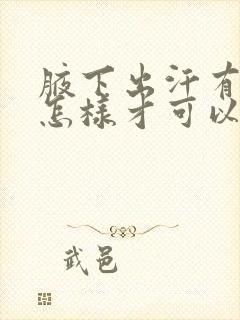 腋下出汗有
怎樣才可以
武邑